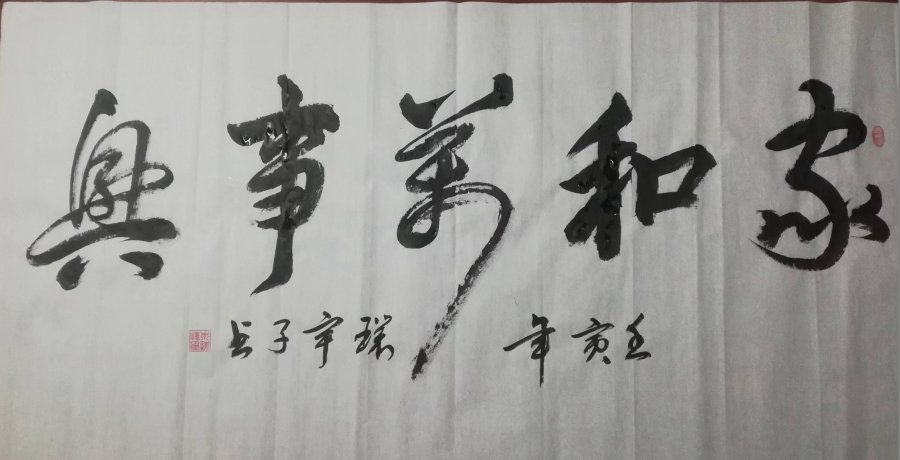 家和萬事興
壬寅年
瑞宇子